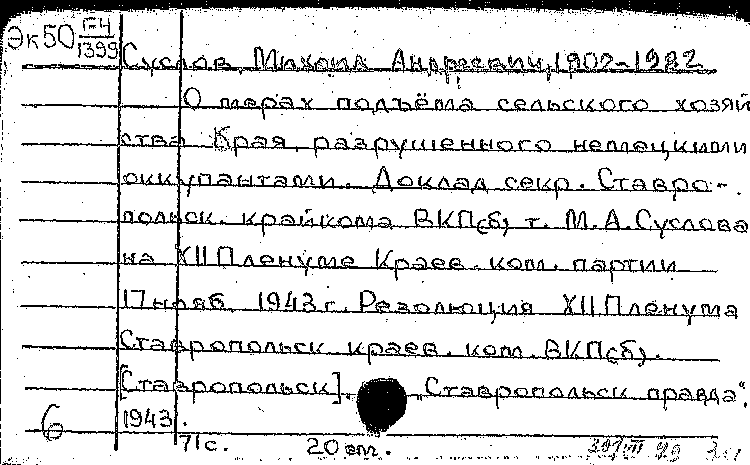 Эк50 Г-4
1399
Суслов, Михаил Андреевич, 1902-1982
О мерах подъёма сельского хозяй
ства Края, разрушенного немецкими
оккупантами. Доклад секр. Ставро-
польск. крайкома ВКП(б) т. М.А.Суслова
на XII Пленуме Краев. ком. партии
17 нояб. 1943 г. Резолюция XII Пленума
Ставропольск краев. ком. ВКП(б).
[Ставропольск], „Ставропольск правда“,
1943.
6
71 с. 20 см.